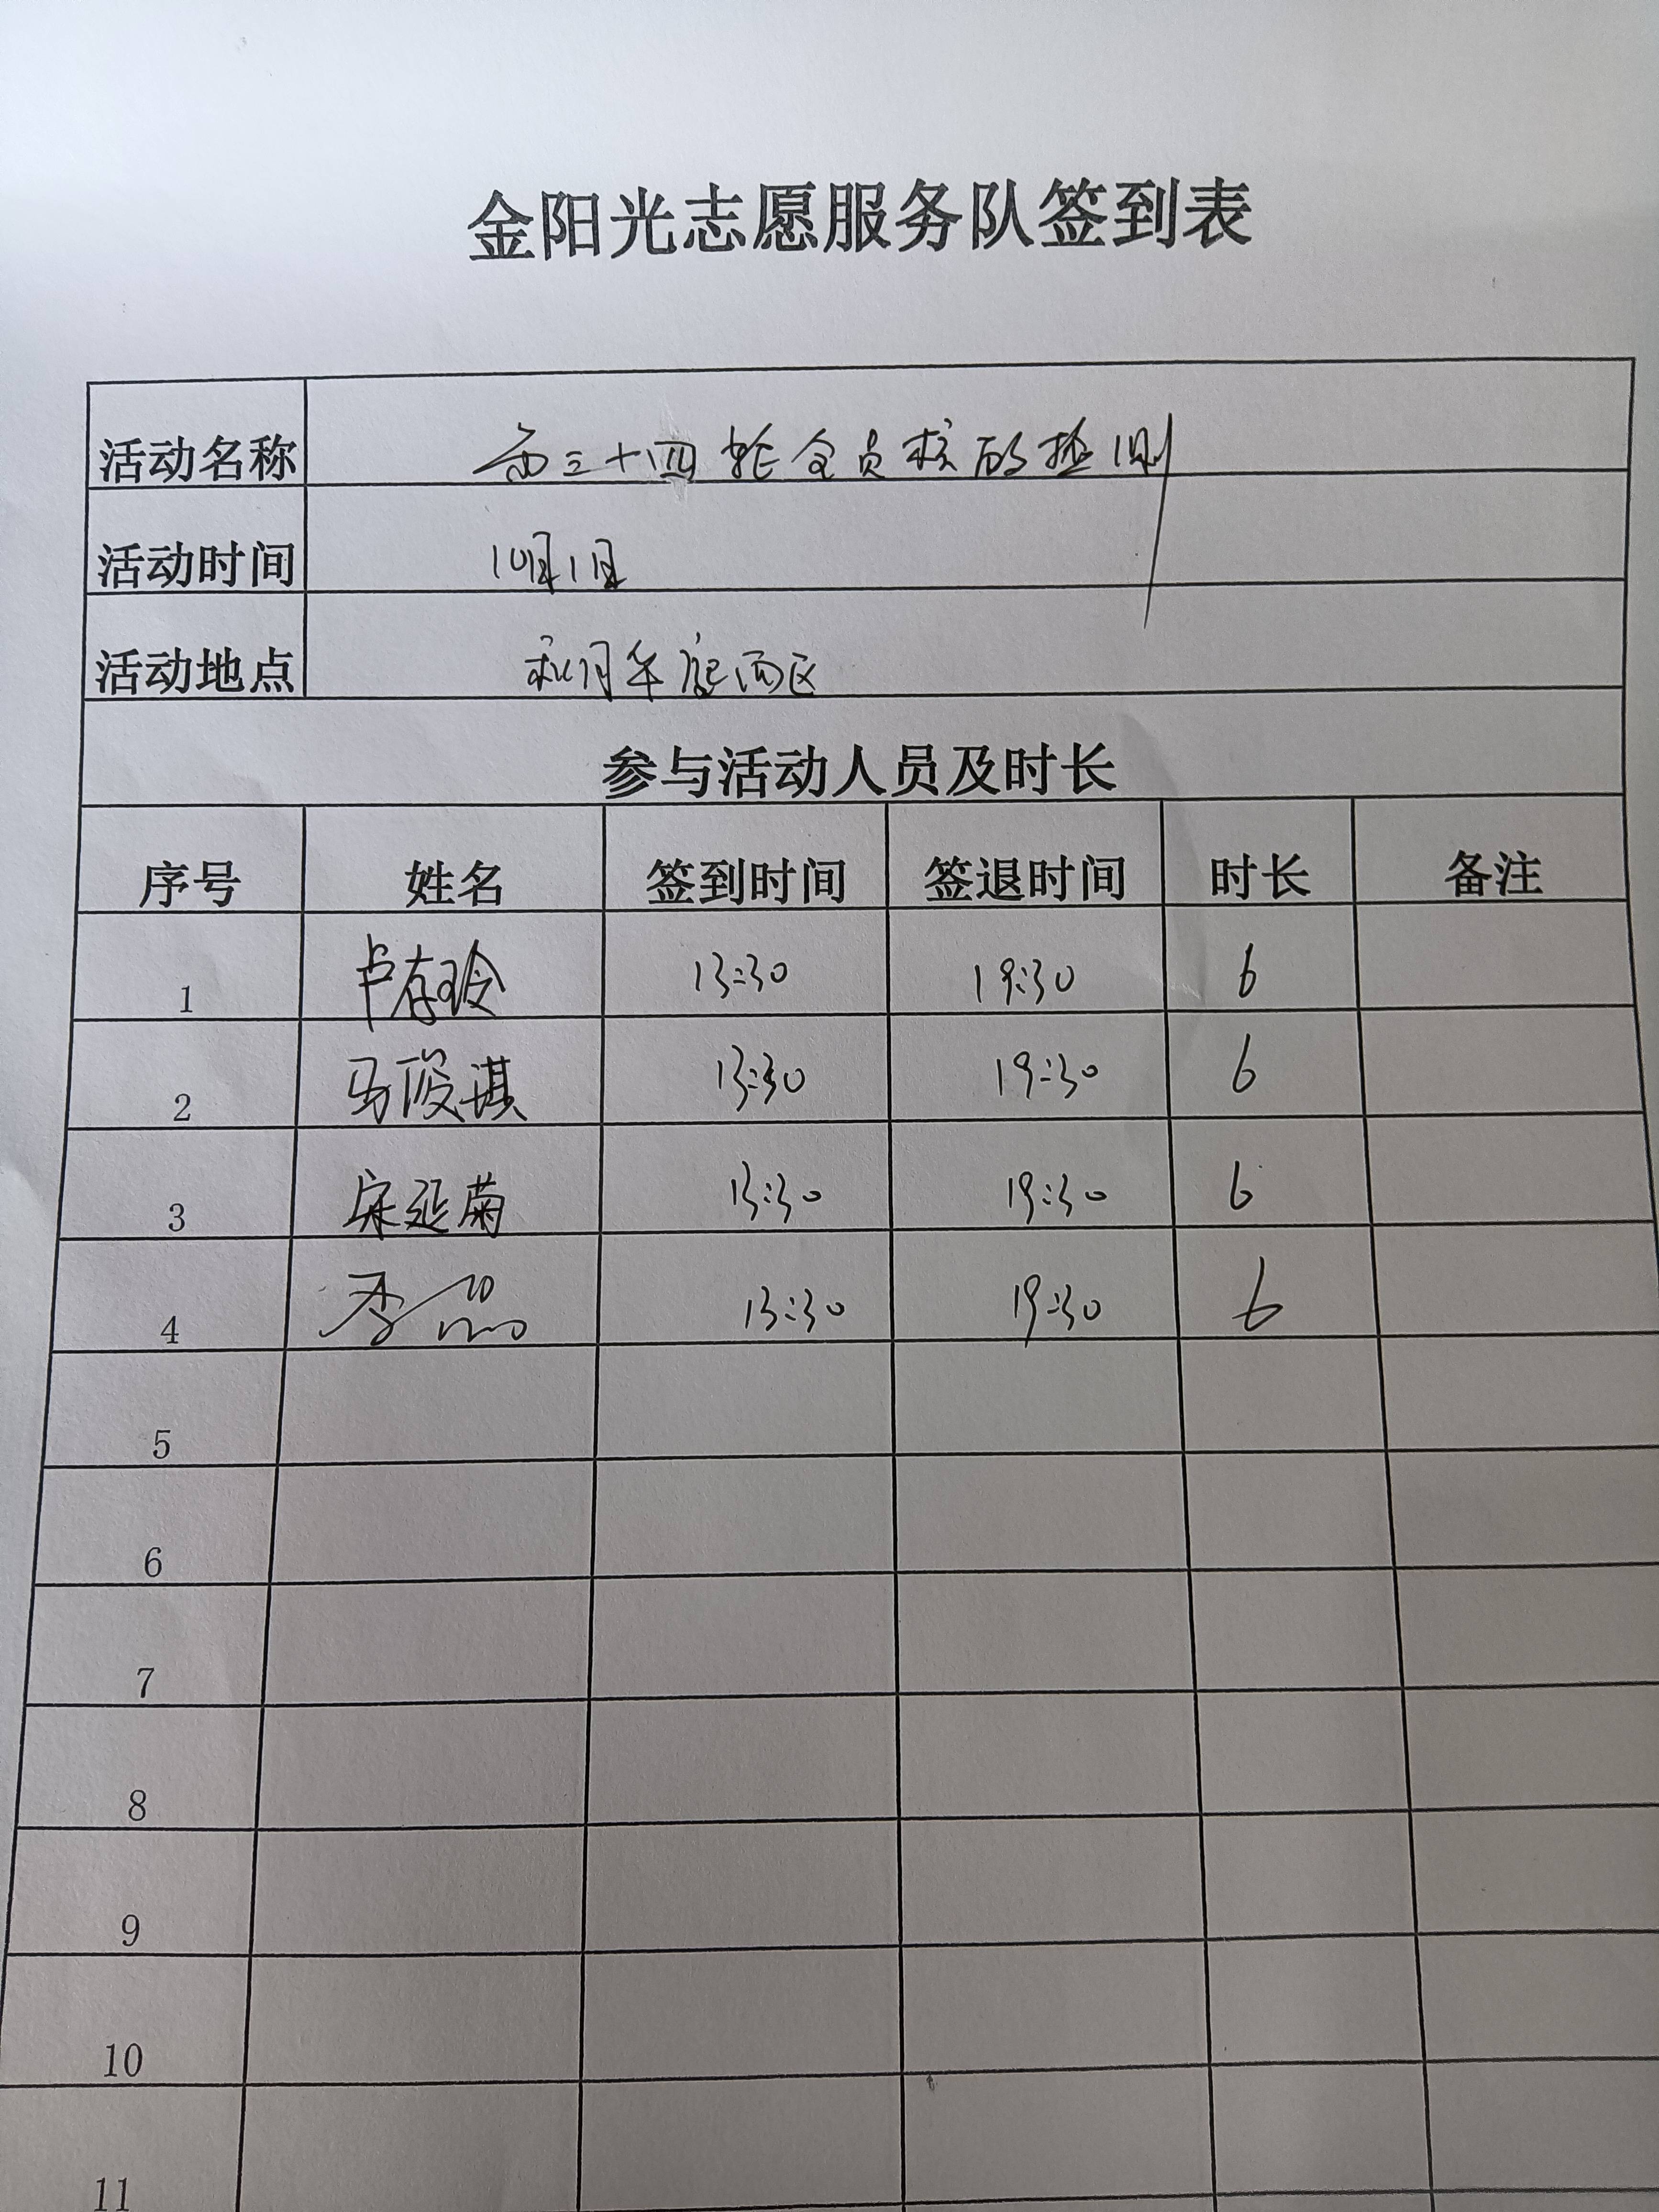 金阳光志愿服务队签到表
活动名称 第三十四轮全员核酸检测
活动时间 10月1日
活动地点 秋月华庭西区
参与活动人员及时长
序号 姓名 签到时间 签退时间 时长 备注
1 卢存玲 13:30 19:30 6
2 马俊琪 13:30 19:30 6
3 宋延菊 13:30 19:30 6
4 李 13:30 19:30 6
5
6
7
8
9
10
11